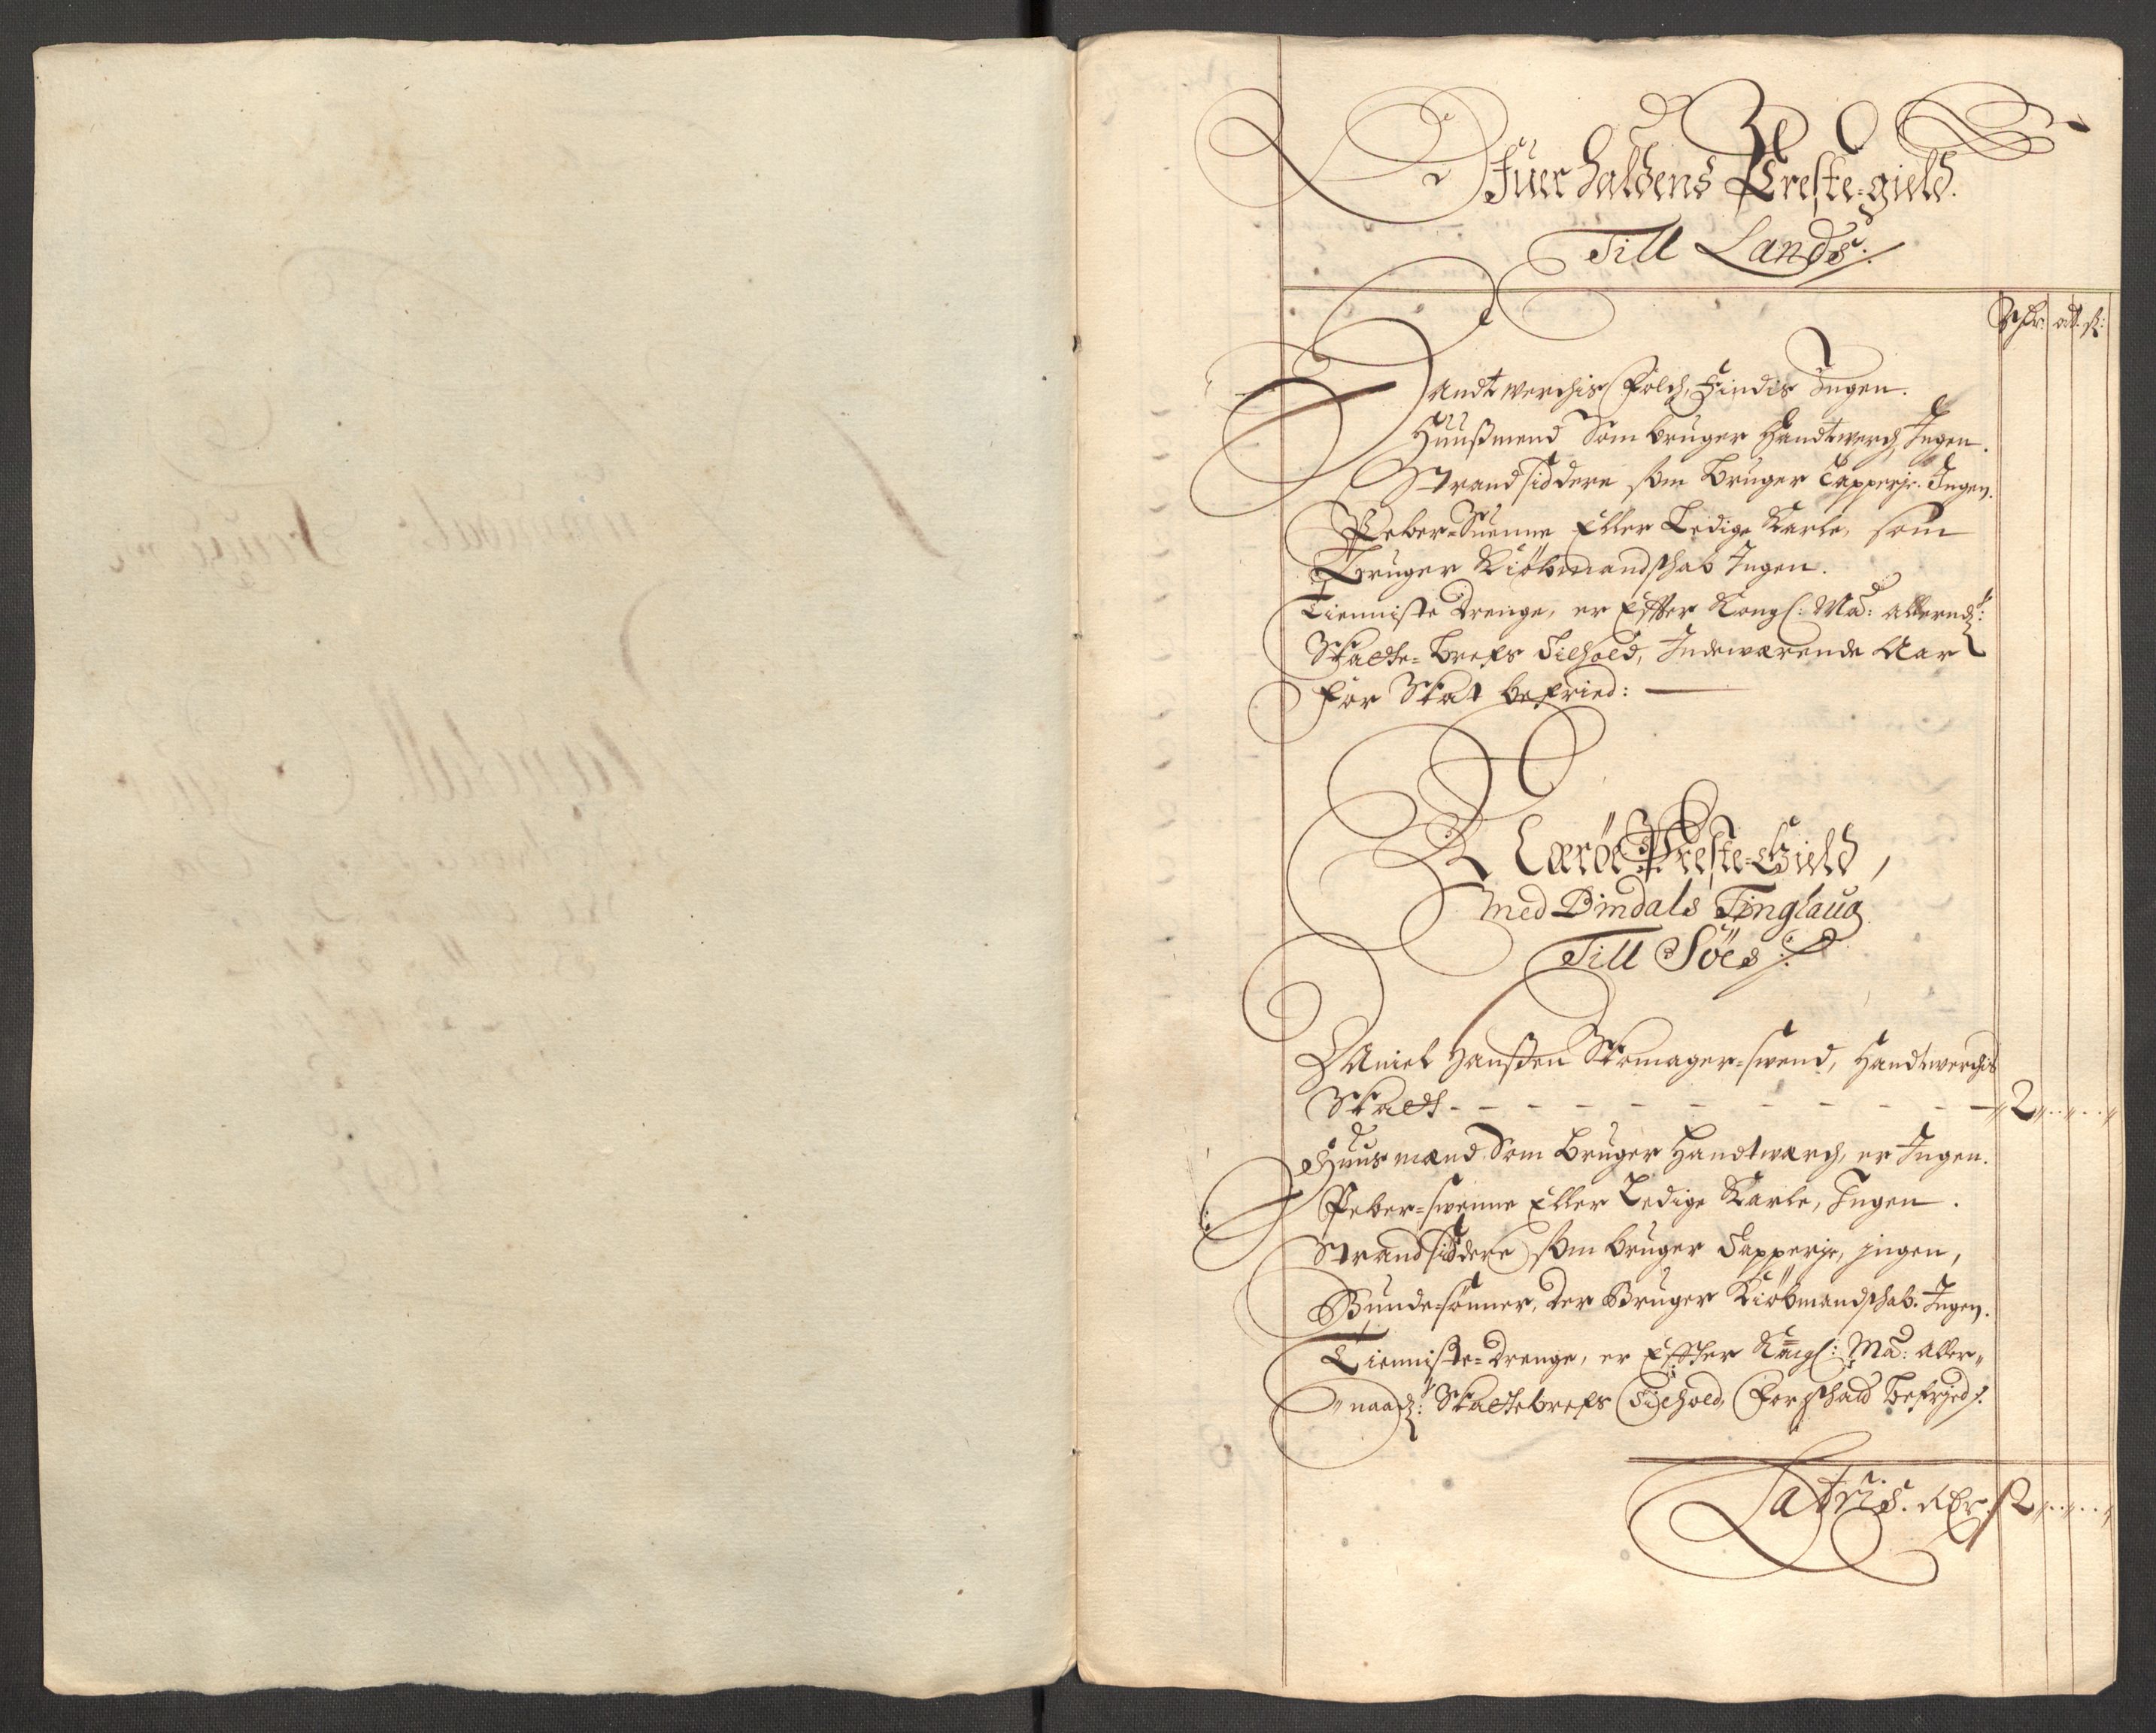 Ofuer Haldens Preste-gield.
Till Lands:
Rdr. ort. ß:
Handtwerchis Folch, Findis Ingen.
Huußmend Som bruger Handtwerch, Ingen.
Strandsiddere som Bruger Tapperje. Ingen.
Peber-Suenne Eller Ledige Karle, som
Bruger Kiöbmandschab Ingen.
Tienniste Drenge, er Effter Kongl: Ma: allernd:
Skatte-brefs Tilhold, Indeværende Aar
for Skat befried:
Nærøe Preste-Gield,
Med Bindals Tinglaug
Till Söes
Daniel Hanßen Skomager-Svend, Handtwerchis
Skatt - - - - - - - - - - - 2 „..„..„
Huusmænd Som Bruger Handtwerch, er Ingen.
Peber-svenne Eller Ledige Karle, Ingen.
Strandsiddere som bruger Tapperje, jngen,
Bunde-sönner, der Bruger Kiöbmandschab. Ingen.
Tienniste-Drenge, er Effter Kongl: Ma: Aller„
„naad: Skattebrefs Tilhold, For schatt befrjed.
Latris. Rdr. 2 „..„..„